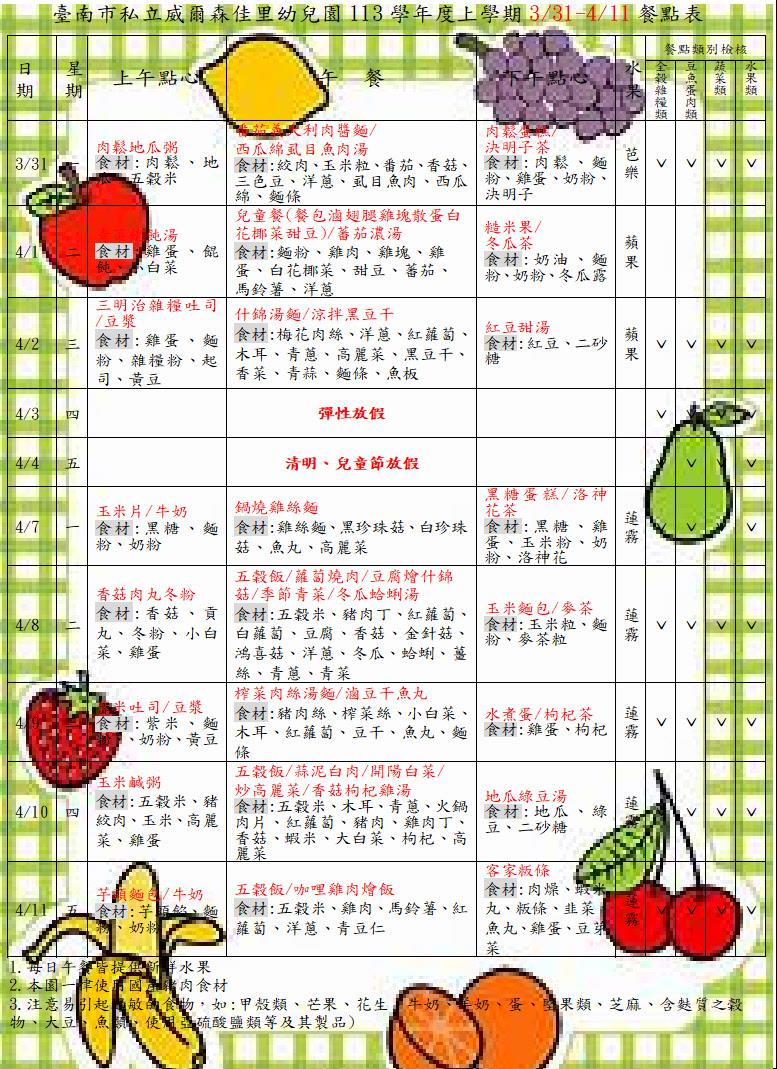 臺南市私立威爾森佳里幼兒園 113 學年度上學期 3/31-4/11 餐點表
日期
星期
上午點心
午 餐
下午點心
水果
餐點類別檢核
全穀雜糧類
豆魚蛋肉類
蔬菜類
水果類
3/31 一
肉鬆地瓜粥
食材:肉鬆、地
瓜、五穀米
番茄義大利肉醬麵/
西瓜綿虱目魚肉湯
食材:絞肉、玉米粒、番茄、香菇、
三色豆、洋蔥、虱目魚肉、西瓜
綿、麵條
肉鬆蛋糕/
決明子茶
食材:肉鬆、麵
粉、雞蛋、奶粉、
決明子
芭樂
v v v v
4/1 二
飩湯
食材:雞蛋、餛
飩、小白菜
兒童餐(餐包滷翅腿雞塊散蛋白
花椰菜甜豆)/蕃茄濃湯
食材:麵粉、雞肉、雞塊、雞
蛋、白花椰菜、甜豆、蕃茄、
馬鈴薯、洋蔥
糙米果/
冬瓜茶
食材:奶油、麵
粉、奶粉、冬瓜露
蘋果
v v v v
4/2 三
三明治雜糧吐司
/豆漿
食材:雞蛋、麵
粉、雜糧粉、起
司、黃豆
什錦湯麵/涼拌黑豆干
食材:梅花肉絲、洋蔥、紅蘿蔔、
木耳、青蔥、高麗菜、黑豆干、
香菜、青蒜、麵條、魚板
紅豆甜湯
食材:紅豆、二砂
糖
蘋果
v v v v
4/3 四
彈性放假
v v v v
4/4 五
清明、兒童節放假
v v v v
4/7 一
玉米片/牛奶
食材:黑糖、麵
粉、奶粉
鍋燒雞絲麵
食材:雞絲麵、黑珍珠菇、白珍珠
菇、魚丸、高麗菜
黑糖蛋糕/洛神
花茶
食材:黑糖、雞
蛋、玉米粉、奶
粉、洛神花
蓮霧
v v v v
4/8 二
香菇肉丸冬粉
食材:香菇、貢
丸、冬粉、小白
菜、雞蛋
五穀飯/蘿蔔燒肉/豆腐燴什錦
菇/季節青菜/冬瓜蛤蜊湯
食材:五穀米、豬肉丁、紅蘿蔔、
白蘿蔔、豆腐、香菇、金針菇、
鴻喜菇、洋蔥、冬瓜、蛤蜊、薑
絲、青蔥、青菜
玉米麵包/麥茶
食材:玉米粒、麵
粉、麥茶粒
蓮霧
v v v v
4/9
紫米吐司/豆漿
食材:紫米、麵
粉、奶粉、黃豆
榨菜肉絲湯麵/滷豆干魚丸
食材:豬肉絲、榨菜絲、小白菜、
木耳、紅蘿蔔、豆干、魚丸、麵
條
水煮蛋/枸杞茶
食材:雞蛋、枸杞
蓮霧
v v v v
4/10 四
玉米鹹粥
食材:五穀米、豬
絞肉、玉米、高麗
菜、雞蛋
五穀飯/蒜泥白肉/開陽白菜/
炒高麗菜/香菇枸杞雞湯
食材:五穀米、木耳、青蔥、火鍋
肉片、紅蘿蔔、豬肉、雞肉丁、
香菇、蝦米、大白菜、枸杞、高
麗菜
地瓜綠豆湯
食材:地瓜、綠
豆、二砂糖
蓮霧
v v v v
4/11 五
芋頭麵包/牛奶
食材:芋頭餡、麵
粉、奶粉
五穀飯/咖哩雞肉燴飯
食材:五穀米、雞肉、馬鈴薯、紅
蘿蔔、洋蔥、青豆仁
客家粄條
食材:肉燥、蝦米、
丸、粄條、韭菜
魚丸、雞蛋、豆芽
菜
蓮霧
v v v v
1. 每日午餐皆提供新鮮水果
2.本園一律使用國產豬肉食材
3.注意易引起過敏的食物，如:甲殼類、芒果、花生、牛奶、羊奶、蛋、堅果類、芝麻、含麩質之穀
物、大豆、魚類、使用亞硫酸鹽類等及其製品)